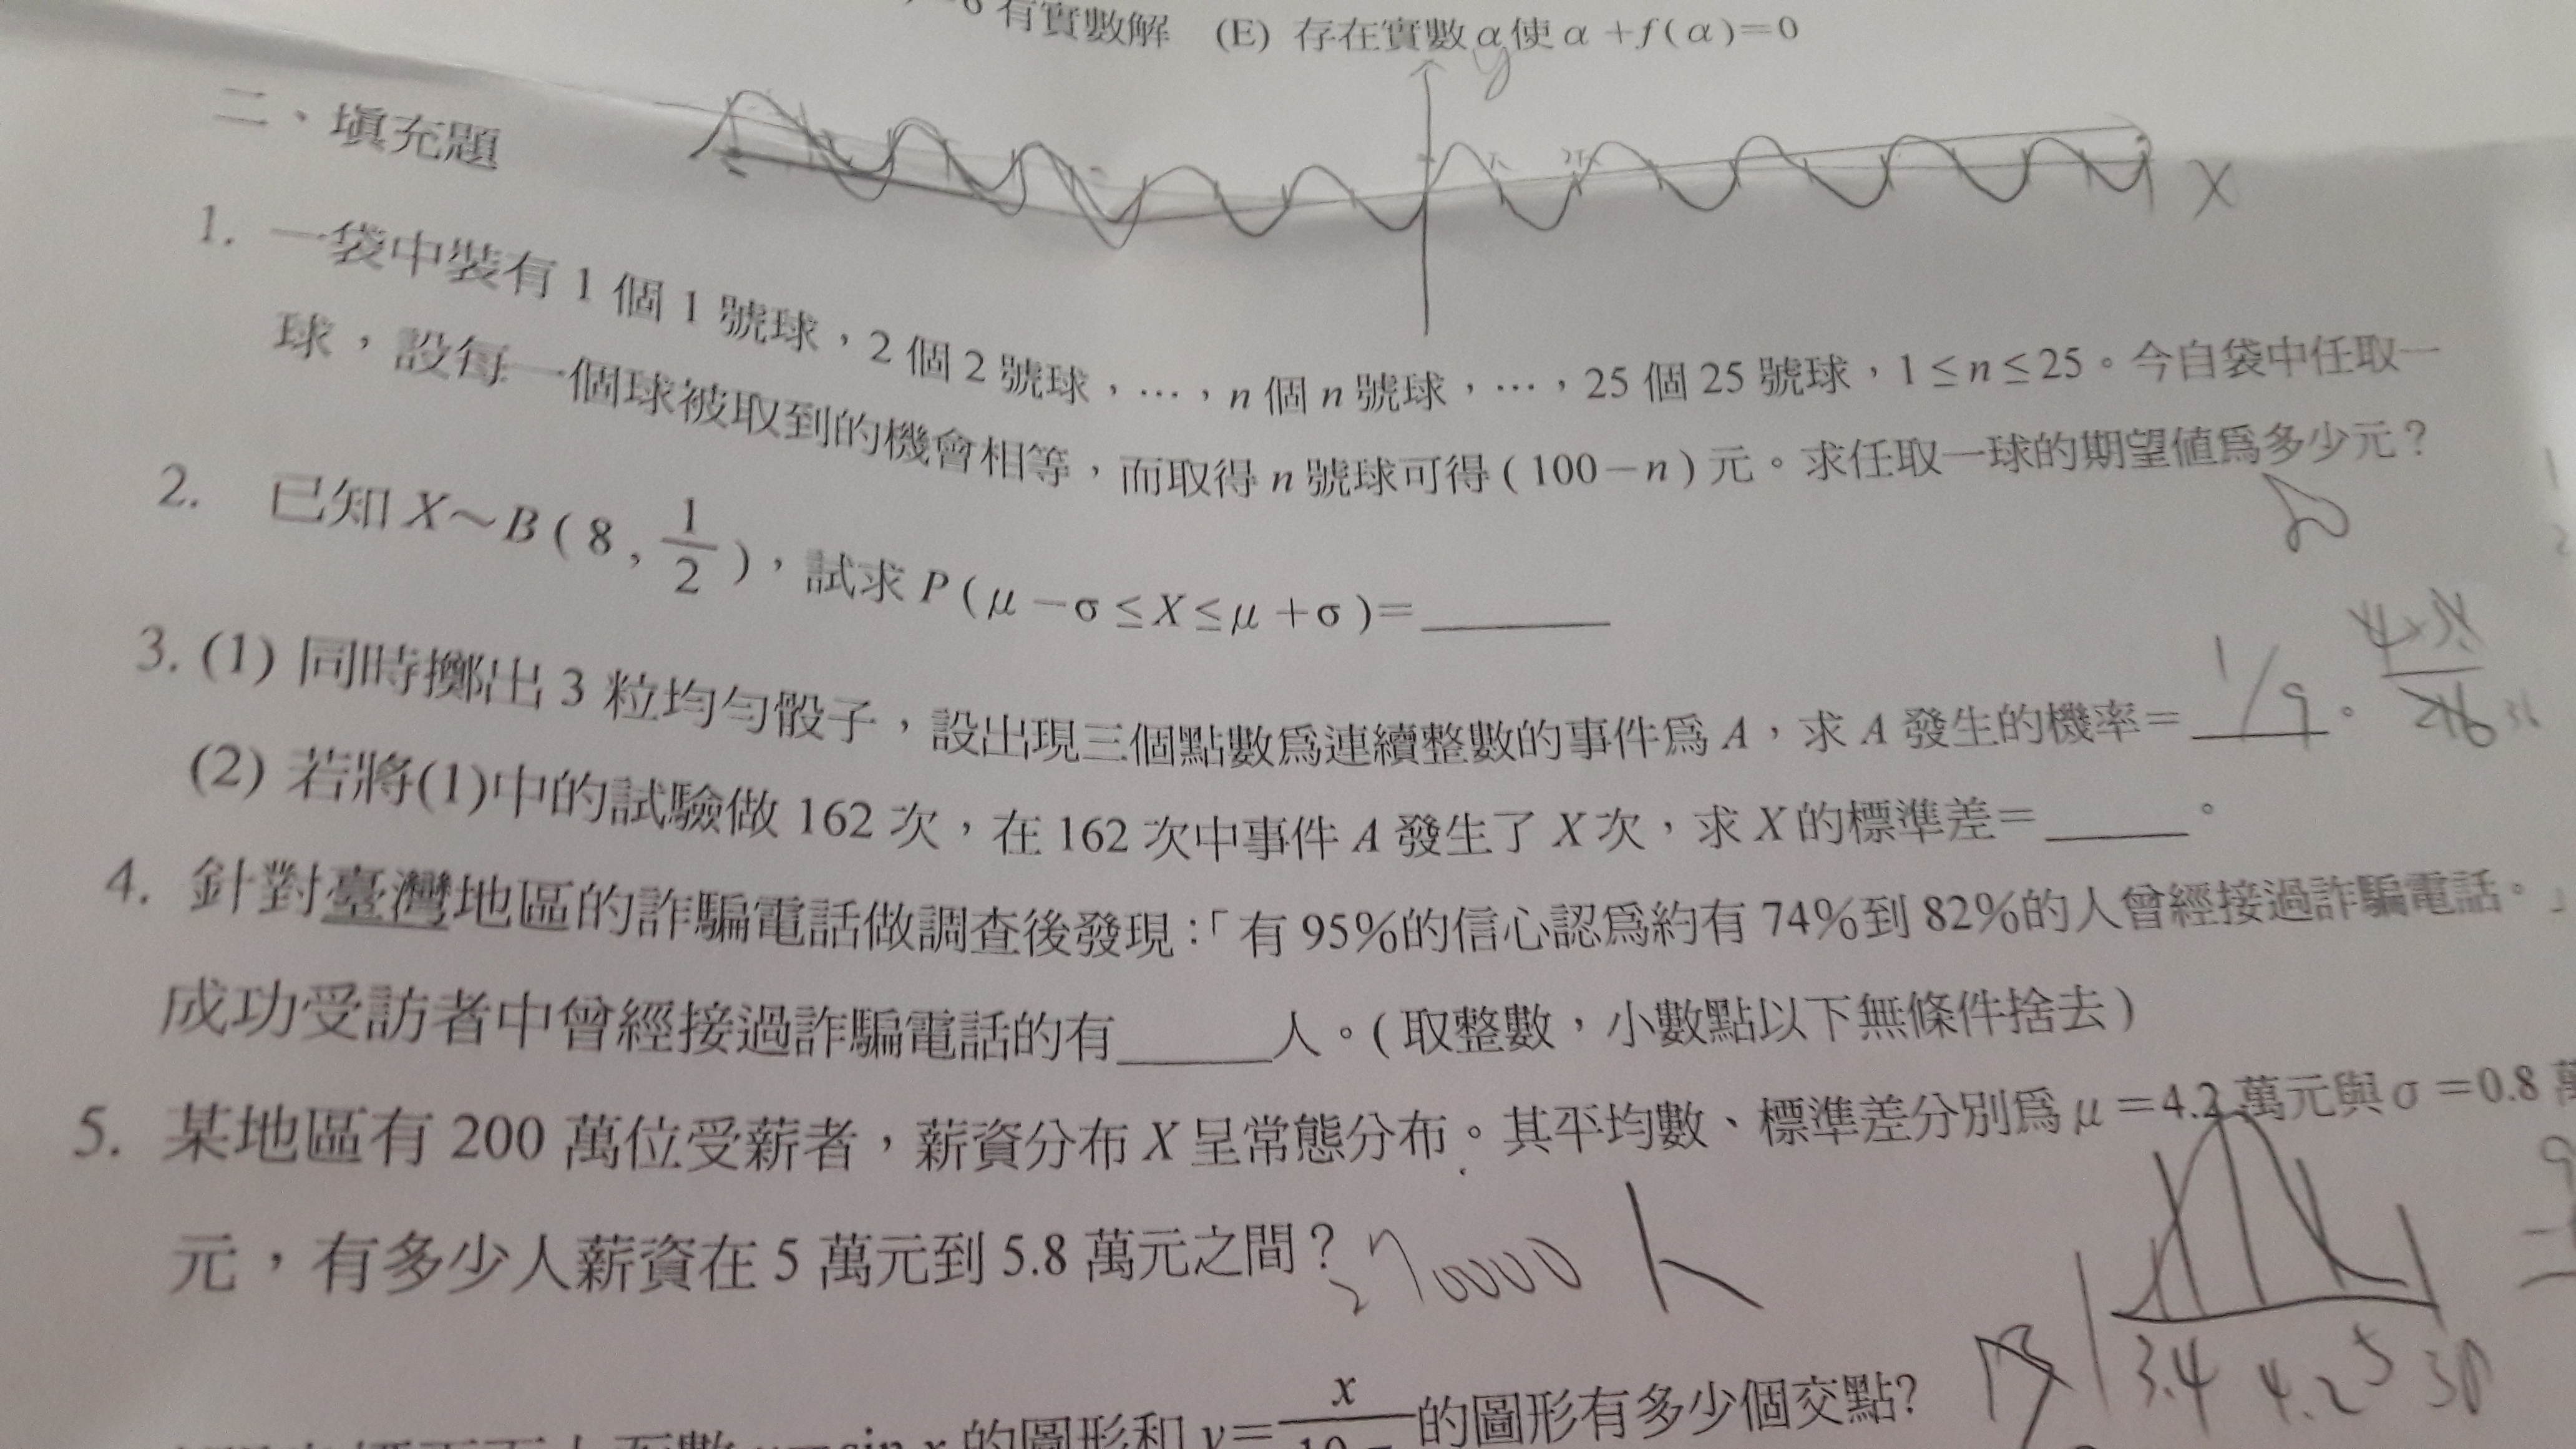 6 有實數解 (E) 存在實數 α 使 α +f(α)=0
y
二、填充題
X
1. 一袋中裝有 1 個 1 號球,2 個 2 號球,…,n 個 n 號球,…,25 個 25 號球,1≤n≤25。今自袋中任取一
球,設每一個球被取到的機會相等,而取得 n 號球可得(100-n)元。求任取一球的期望值爲多少元?
2. 已知 X～B(8, 1/2),試求 P(μ-σ≤X≤μ+σ)=______
3. (1) 同時擲出 3 粒均勻骰子,設出現三個點數爲連續整數的事件爲 A,求 A 發生的機率= 1/9 。
(2) 若將(1)中的試驗做 162 次,在 162 次中事件 A 發生了 X 次,求 X 的標準差=_____。
4. 針對臺灣地區的詐騙電話做調查後發現:「有 95%的信心認爲約有 74%到 82%的人曾經接過詐騙電話。」
成功受訪者中曾經接過詐騙電話的有_____人。(取整數,小數點以下無條件捨去)
5. 某地區有 200 萬位受薪者,薪資分布 X 呈常態分布。其平均數、標準差分別爲 μ=4.2 萬元與 σ=0.8 萬
元,有多少人薪資在 5 萬元到 5.8 萬元之間? 270000 人
3.4 4.2 5
的圖形和 y= x 的圖形有多少個交點?